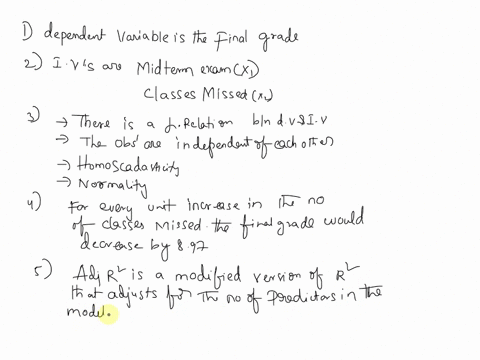 1) dependent Variable is the Final grade
2) I.V's are Midterm exam (X1)
Classes Missed (X2)
3) → There is a L.Relation b/n d.v & I.V
→ The obs' are independent of each other
→ Homoscadavicity
→ Normality
4) For every unit increase in the no
of classes missed. the final grade would
decrease by 8.97
5) Adj R² is a modified version of R²
that adjusts for the no of predictors in the
model.